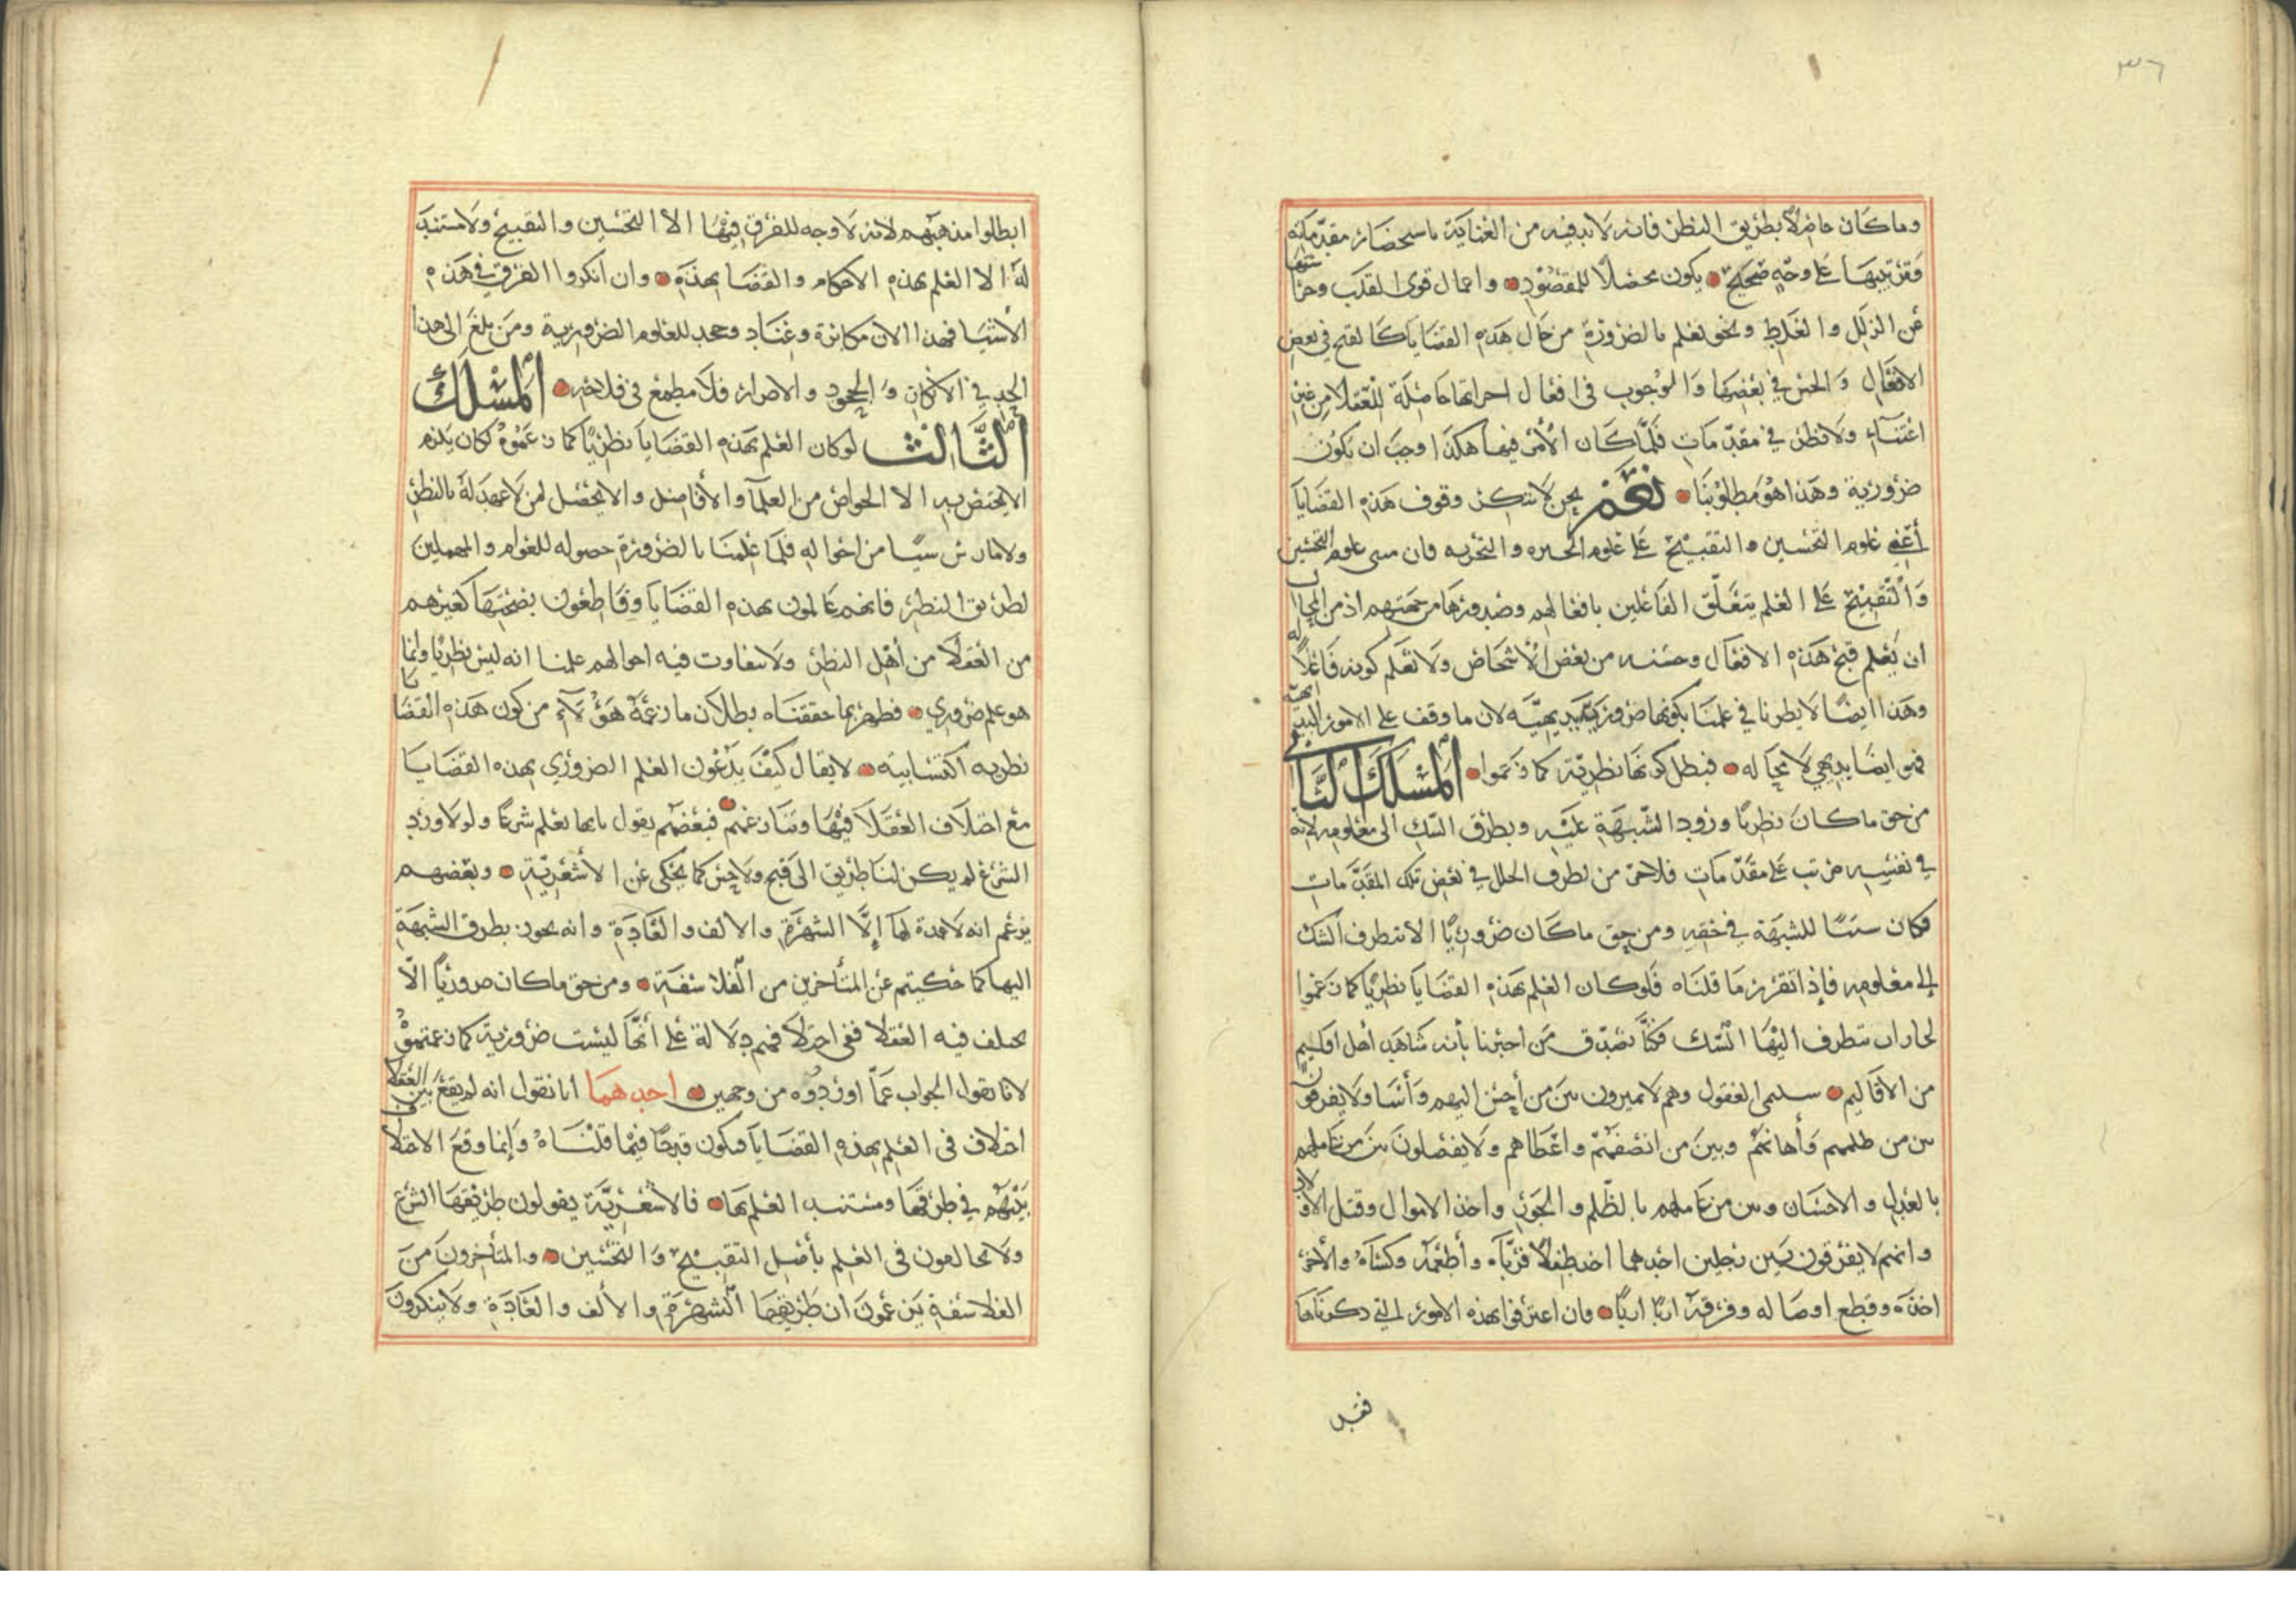 ٣٦
وما كان حاصلا بطريق النظر فانه لا بد فيه من العناية باستحضار مقدماته
وترتيبها على وجه صحيح يكون محصلا للمقصود واعمال قوى القلب وحراستها
عن الزلل والغلط ونحن نعلم بالضرورة من حال هذه القضايا كالقبح في بعض
الافعال والحسن في بعضها والوجوب في افعال اخر انها حاصلة للعقلا من غير
اعتناء ولا نظر في مقدمات فلما كان الأمر فيها هكذا وجب ان تكون
ضرورية وهذا هو مطلوبنا نعم نحن لا ننكر وقوف هذه القضايا
أعني علوم التحسين والتقبيح على علوم الخبره والتجربه فان مبنى علوم التحسين
والتقبيح على العلم بتعلق الفاعلين بافعالهم وصدورها من جهتهم اذ من المحال
ان يعلم قبح هذه الافعال وحسنه من بعض الأشخاص ولا نعلم كونه فاعلا له
وهذا ايضا لا يطرنا في علمنا بكونها ضرورية بديهية لان ما وقف على الامور البديهية
فهو ايضا بديهي لا محاله فبطل كونها نظرية كما زعموا المسلك الثاني
من حق ما كان نظريا ورود الشبهة عليه وتطرق الشك الى معلومه لانه
في نفسه مرتب على مقدمات فلا جرم من تطرق الخلل في بعض تلك المقدمات
فكان سببا للشبهة في حقه ومن حق ما كان ضروريا الا يتطرق الشك
إلى معلومه فإذا تقرر ما قلناه فلو كان العلم بهذه القضايا نظريا كما زعموا
لجاز ان يتطرق اليها الشك فكنا نصدق من اخبرنا بأنه شاهد أهل اقليم
من الاقاليم سليمى العقول وهم لا يميزون بين من أحسن اليهم وأسا ولا يفرقون
بين من ظلمهم وأهانهم وبين من انصفهم واعطاهم ولا يفصلون بين من عاملهم
بالعدل والاحسان وبين من عاملهم بالظلم والجور واخذ الاموال وقتل الأولاد
وانهم لا يفرقون بين رجلين احدهما اخذ طفلا فربّاه وأطعمه وكساه والأخر
اخذه وقطع اوصاله وفرقه اربا اربا فان اعترفوا بهذه الامور التي ذكرناها
فقد
ابطلوا مذهبهم لانه لا وجه للفرق فيها الا التحسين والتقبيح ولا مستند
له الا العلم بهذه الاحكام والقضايا بهذه وان انكروا الفرق في هذه
الأشيا فهذا الان مكابرة وعناد وجحد للعلوم الضرورية ومن بلغ الى هذا
الحد في الانكار والجحود والاصرار فلا مطمع في فلاحه المسلك
الثالث لو كان العلم بهذه القضايا نظريا كما زعموه لكان يلزم
الا يختص به الا الخواص من العلما والأفاضل والا يحصل لمن لا عهد له بالنظر
ولا مارس شيئا من احواله فلما علمنا بالضرورة حصوله للعوام والمهملين
لطريق النظر فانهم عالمون بهذه القضايا وقاطعون بصحتها كغيرهم
من العقلا من أهل النظر ولا تتفاوت فيه احوالهم علمنا انه ليس نظريا وانما
هو علم ضروري فظهر بما حققناه بطلان ما زعمه هؤلاء من كون هذه القضايا
نظريه اكتسابية لا يقال كيف يدعون العلم الضروري بهذه القضايا
مع اختلاف العقلا فيها وتنازعهم فبعضهم يقول بانها تعلم شرعا ولولا ورود
الشرع لم يكن لنا طريق الى قبح ولا حسن كما يحكى عن الأشعرية وبعضهم
يزعم انه لا عمدة لها إلا الشهرة والالف والعادة وانه يجوز تطرق الشبهة
اليها كما حكيتم عن المتأخرين من الفلاسفة ومن حق ما كان ضروريا الّا
يختلف فيه العقلا ففي اختلافهم دلالة على أنها ليست ضرورية كما زعمتموه
لانا نقول الجواب عما اوردوه من وجهين احدهما انا نقول انه لم يقع بين العقلا
اختلاف في العلم بهذه القضايا فيكون قدحا فيما قلناه وإنما وقع الاختلاف
بينهم في طرقها ومستند العلم بها فالأشعرية يقولون طريقها الشرع
ولا يخالفون في العلم بأصل التقبيح والتحسين والمتأخرون من
الفلاسفة يزعمون ان طريقها الشهرة والألف والعادة ولا ينكرون